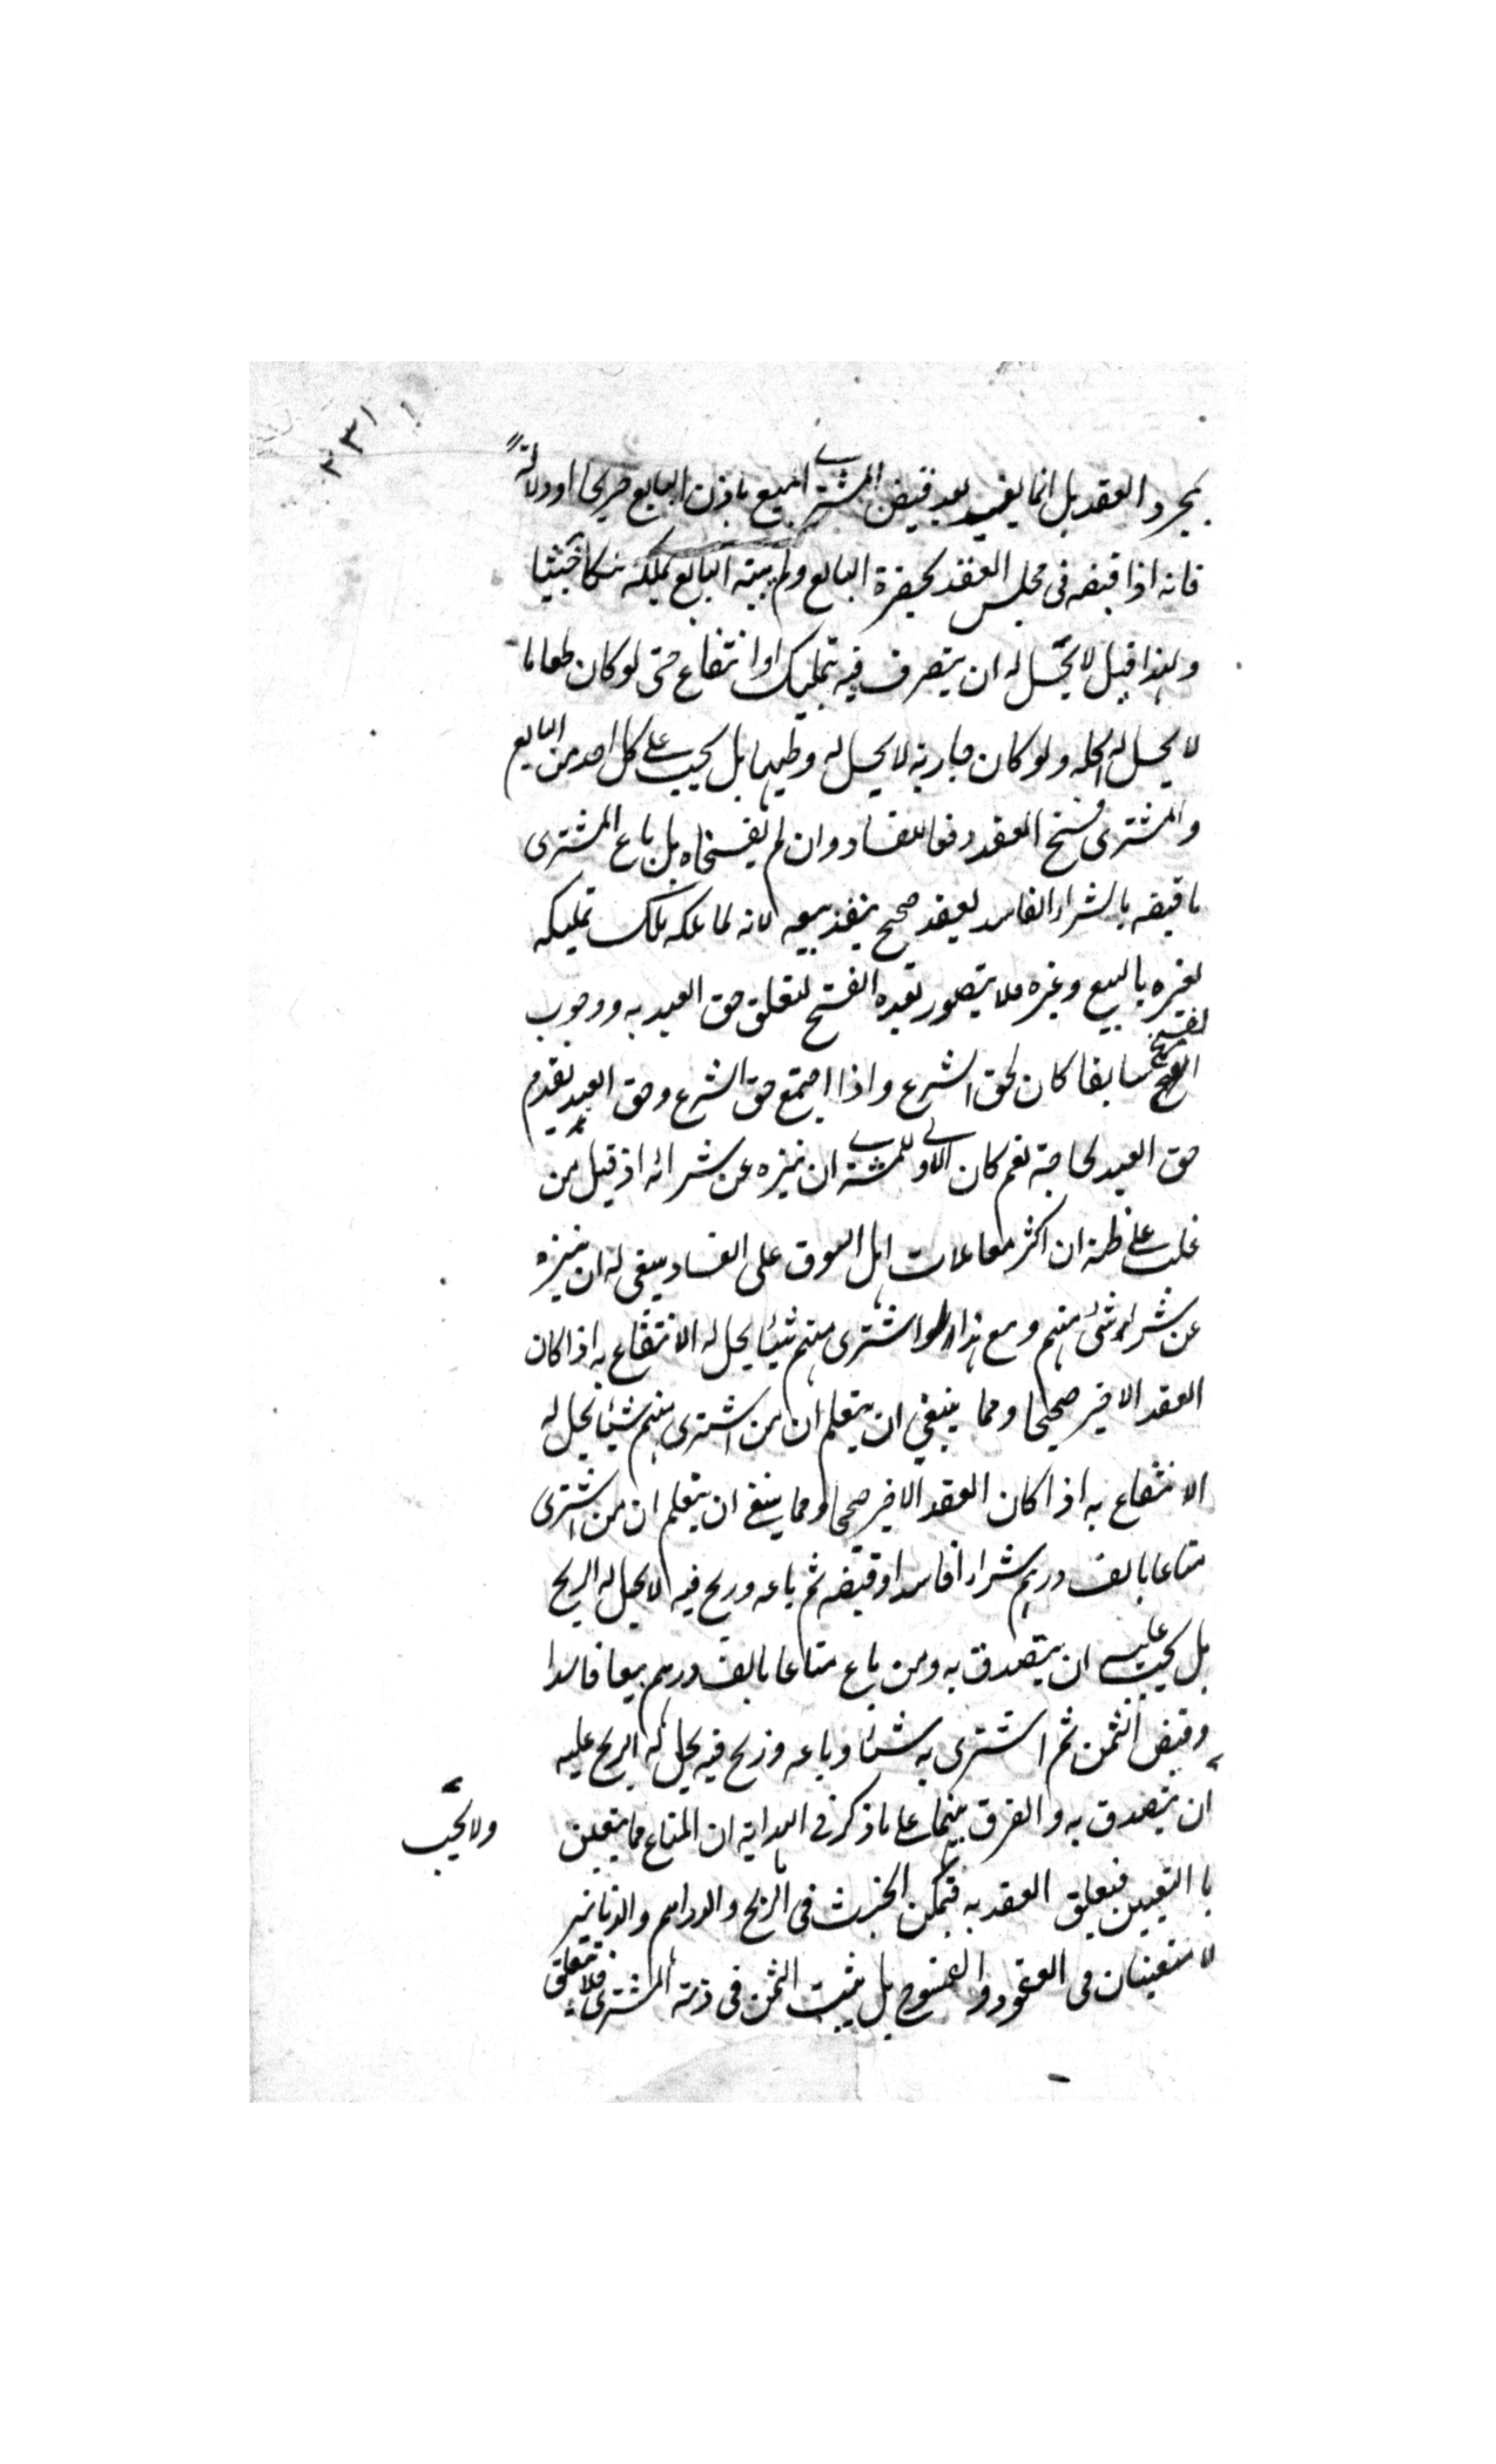 ٢٣١
بمجرد العقد بل انما يفيد بعد قبض المشتري المبيع باذن البايع صريحا او دلالة
فانه اذا قبضه فى مجلس العقد بحضرة البايع ولم ينهه البايع يملكه ملكا خبيثا
ولهذا قيل لا يحل له ان يتصرف فيه بتمليك او انتفاع حتى لو كان طعاما
لا يحل له اكله ولو كان جارية لا يحل له وطيها بل يجب على كل احد من البايع
والمشترى فسخ العقد رفعا للفساد وان لم يفسخاه بل باع المشترى
ما قبضه بالشراء الفاسد بعقد صحيح ينفذ بيعه لانه لما ملكه ملك تمليكه
لغيره بالبيع وغيره فلا يتصور بعده الفسخ لتعلق حق العبد به ووجوب
الفسخ سابقا كان لحق الشرع واذا اجتمع حق الشرع وحق العبد يقدم
حق العبد لحاجته نعم كان الاولى للمشتري ان يتنزه عن شرائه اذ قيل من
غلب على ظنه ان اكثر معاملات اهل السوق على الفساد ينبغى له ان يتنزه
عن شراء شئ منهم ومع هذا لو اشترى منهم شيئا يحل له الانتفاع به اذا كان
العقد الاخير صحيحا ومما ينبغي ان يتعلم ان من اشترى منهم شيئا يحل له
الانتفاع به اذا كان العقد الاخير صحيحا ومما ينبغى ان يتعلم ان من اشترى
متاعا بالف درهم شراء فاسدا وقبضه ثم باعه وربح فيه لا يحل له الربح
بل يجب عليه ان يتصدق به ومن باع متاعا بالف درهم بيعا فاسدا
وقبض الثمن ثم اشترى به شيئا وباعه وربح فيه يحل له الربح عليه
ان يتصدق به والفرق بينهما على ما ذكر فى الهداية ان المتاع مما يتعين
ولا يجب
با التعيين فيتعلق العقد به فتمكن الخبث فى الربح والدراهم والدنانير
لا تتعينان فى العقود والفسوخ بل يثبت الثمن فى ذمة المشترى فلا يتعلق